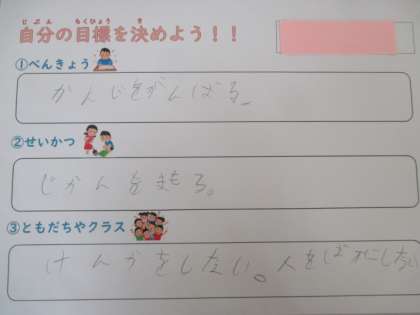 じぶん もくひょう き
自分の目標を決めよう！！
①べんきょう
かんじをがんばる。
②せいかつ
じかんをまもる。
③ともだちやクラス
けんかをしない。人をばかにしない